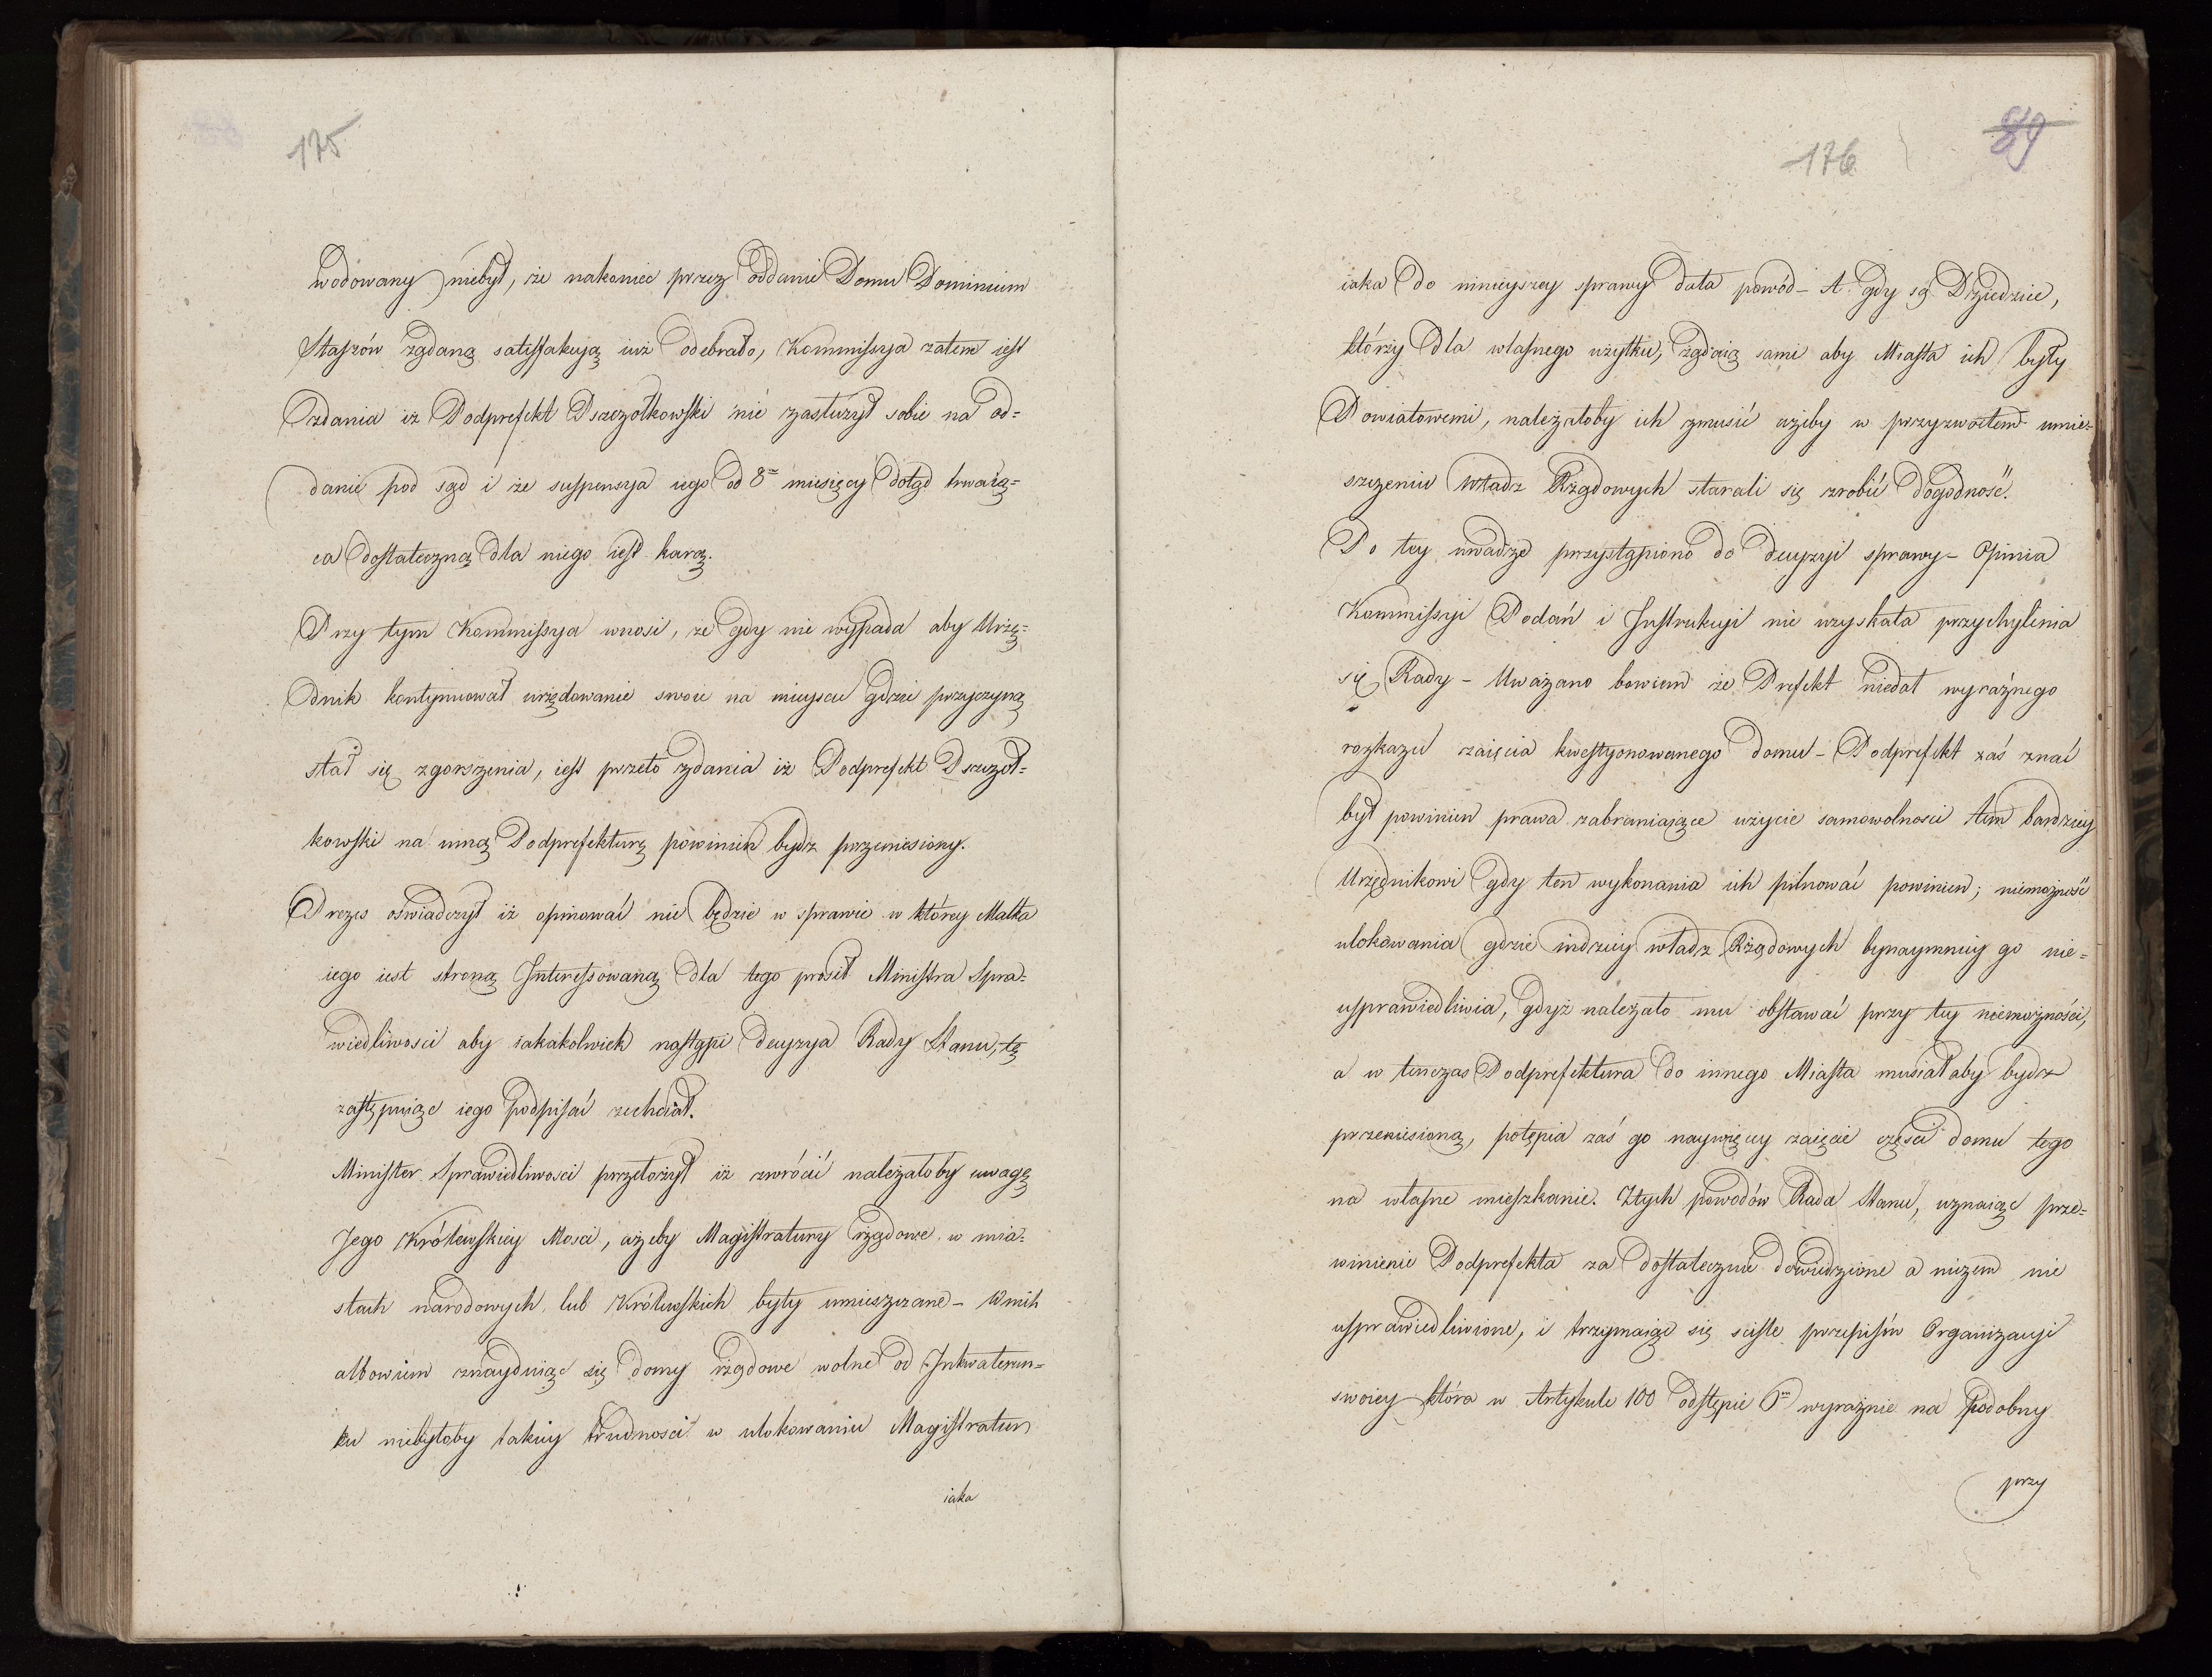 175
wodowany niebył, że nakoniec przez oddanie Domu Dominium
Staszów żądaną satisfakcyą iuż odebrało, Kommissya zatem iest
zdania iż Podprefekt Pszczołkowski nie zasłużył sobie na od=
danie pod sąd i że suspensya iego od 8m miesięcy dotąd trwaią=
ca dostateczną dla niego iest karą.
Przy tym Kommissya wnosi, że gdy nie wypada aby Urzę=
dnik kontynuował urzędowanie swoie na mieyscu gdzie przyczyną
stał się zgorszenia, iest przeto zdania iż Podprefekt Pszczoł=
kowski na inną Podprefekturę powinien bydz przeniesiony.
Prezes oświadczył iż opinować nie będzie w sprawie w którey Matka
iego iest stroną Interessowaną dla tego prosił Ministra Spra=
wiedliwosci aby iakakolwiek nastąpi decyzya Rady Stanu, tę
zastępuiąc iego podpisać zechciał.
Minister Sprawiedliwosci przełożył iż zwrócić należałoby uwagę
Jego Królewskiey Mosci, ażeby Magistratury rządowe w mia=
stach narodowych lub Królewskich były umieszczane - W nich
albowiem znayduiąc się domy rządowe wolne od Inkwaterun=
ku niebyłoby takiey trudnosci w ulokowaniu Magistratur
iaka
176
89
iaka do ninieyszey sprawy dała powód - A gdy są Dziedzice,
którzy dla własnego użytku, żądaią sami aby Miasta ich były
Powiatowemi, należałoby ich zmusić ażeby w przyzwoitem umie=
szczeniu Władz Rządowych starali się zrobić dogodność.
Po tey uwadze przystąpiono do decyzyi sprawy - Opinia
Kommissyi Podań i Instrukcyi nie uzyskała przychylenia
się Rady - Uważano bowiem że Prefekt niedał wyraźnego
rozkazu zaięcia kwestyonowanego domu - Podprefekt zaś znać
był powinien prawa zabraniaiące użycie samowolnosci tem bardziey
Urzędnikowi gdy ten wykonania ich pilnować powinien; niemożność
ulokowania gdzie indziey władz Rządowych bynaymniey go nie=
usprawiedliwia, gdyż należało mu obstawać przy tey niemożności,
a w tenczas Podprefektura do innego Miasta musiałaby bydz
przeniesioną, potępia zaś go naywięcey zaięcie częsci domu tego
na własne mieszkanie. Z tych powodów Rada Stanu, uznaiąc prze=
winienie Podprefekta za dostatecznie dowiedzione a niczem nie
usprawiedliwione, i trzymaiąc się sciśle przepisów Organizacyi
swoiey która w Artykule 100 odstępie 6m wyraźnie na podobny
przy